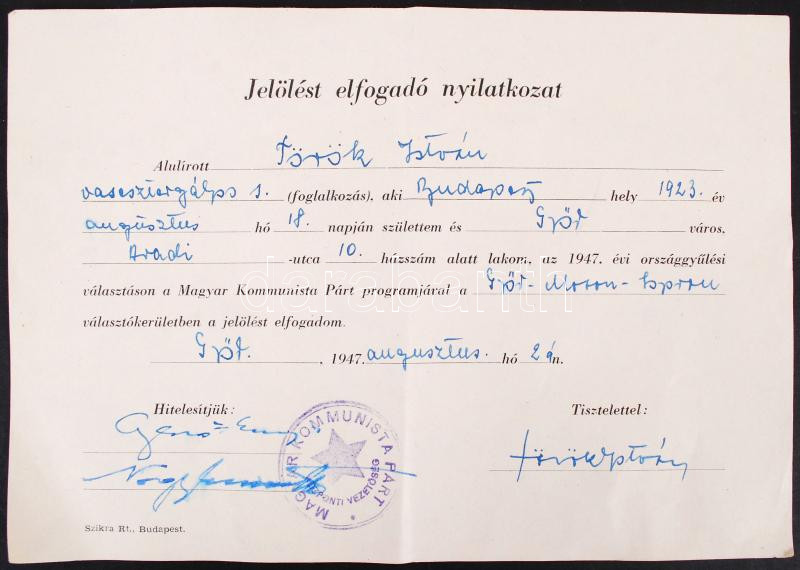 Jelölést elfogadó nyilatkozat
Alulírott Török István
vasesztergályos s. (foglalkozás), aki Budapest hely 1923. év
augusztus hó 18. napján születtem és Győr város,
Aradi -utca 10. házszám alatt lakom, az 1947. évi országgyűlési
választáson a Magyar Kommunista Párt programjával a Győr-Moson-Sopron
választókerületben a jelölést elfogadom.
Győr. , 1947. augusztus. hó 2 án.
Hitelesítjük:
Tisztelettel:
Török István
MAGYAR KOMMUNISTA PÁRT
KÖZPONTI VEZETŐSÉG
Szikra Rt., Budapest.
darabanth